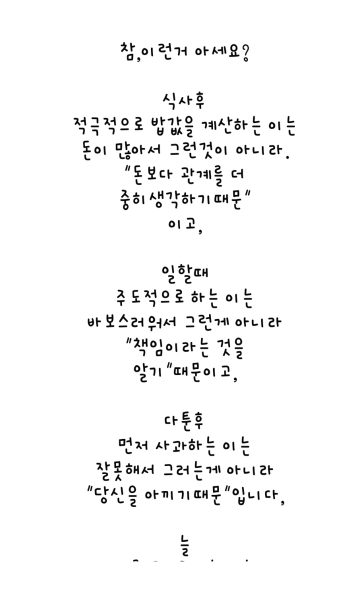 참,이런거 아세요?
식사후
적극적으로 밥값을 계산하는 이는
돈이 많아서 그런것이 아니라.
"돈보다 관계를 더
중히생각하기때문"
이고,
일할때
주도적으로 하는 이는
바보스러워서 그런게 아니라
"책임이라는 것을
알기"때문이고,
다툰후
먼저 사과하는 이는
잘못해서 그러는게 아니라
"당신을 아끼기때문"입니다,
늘